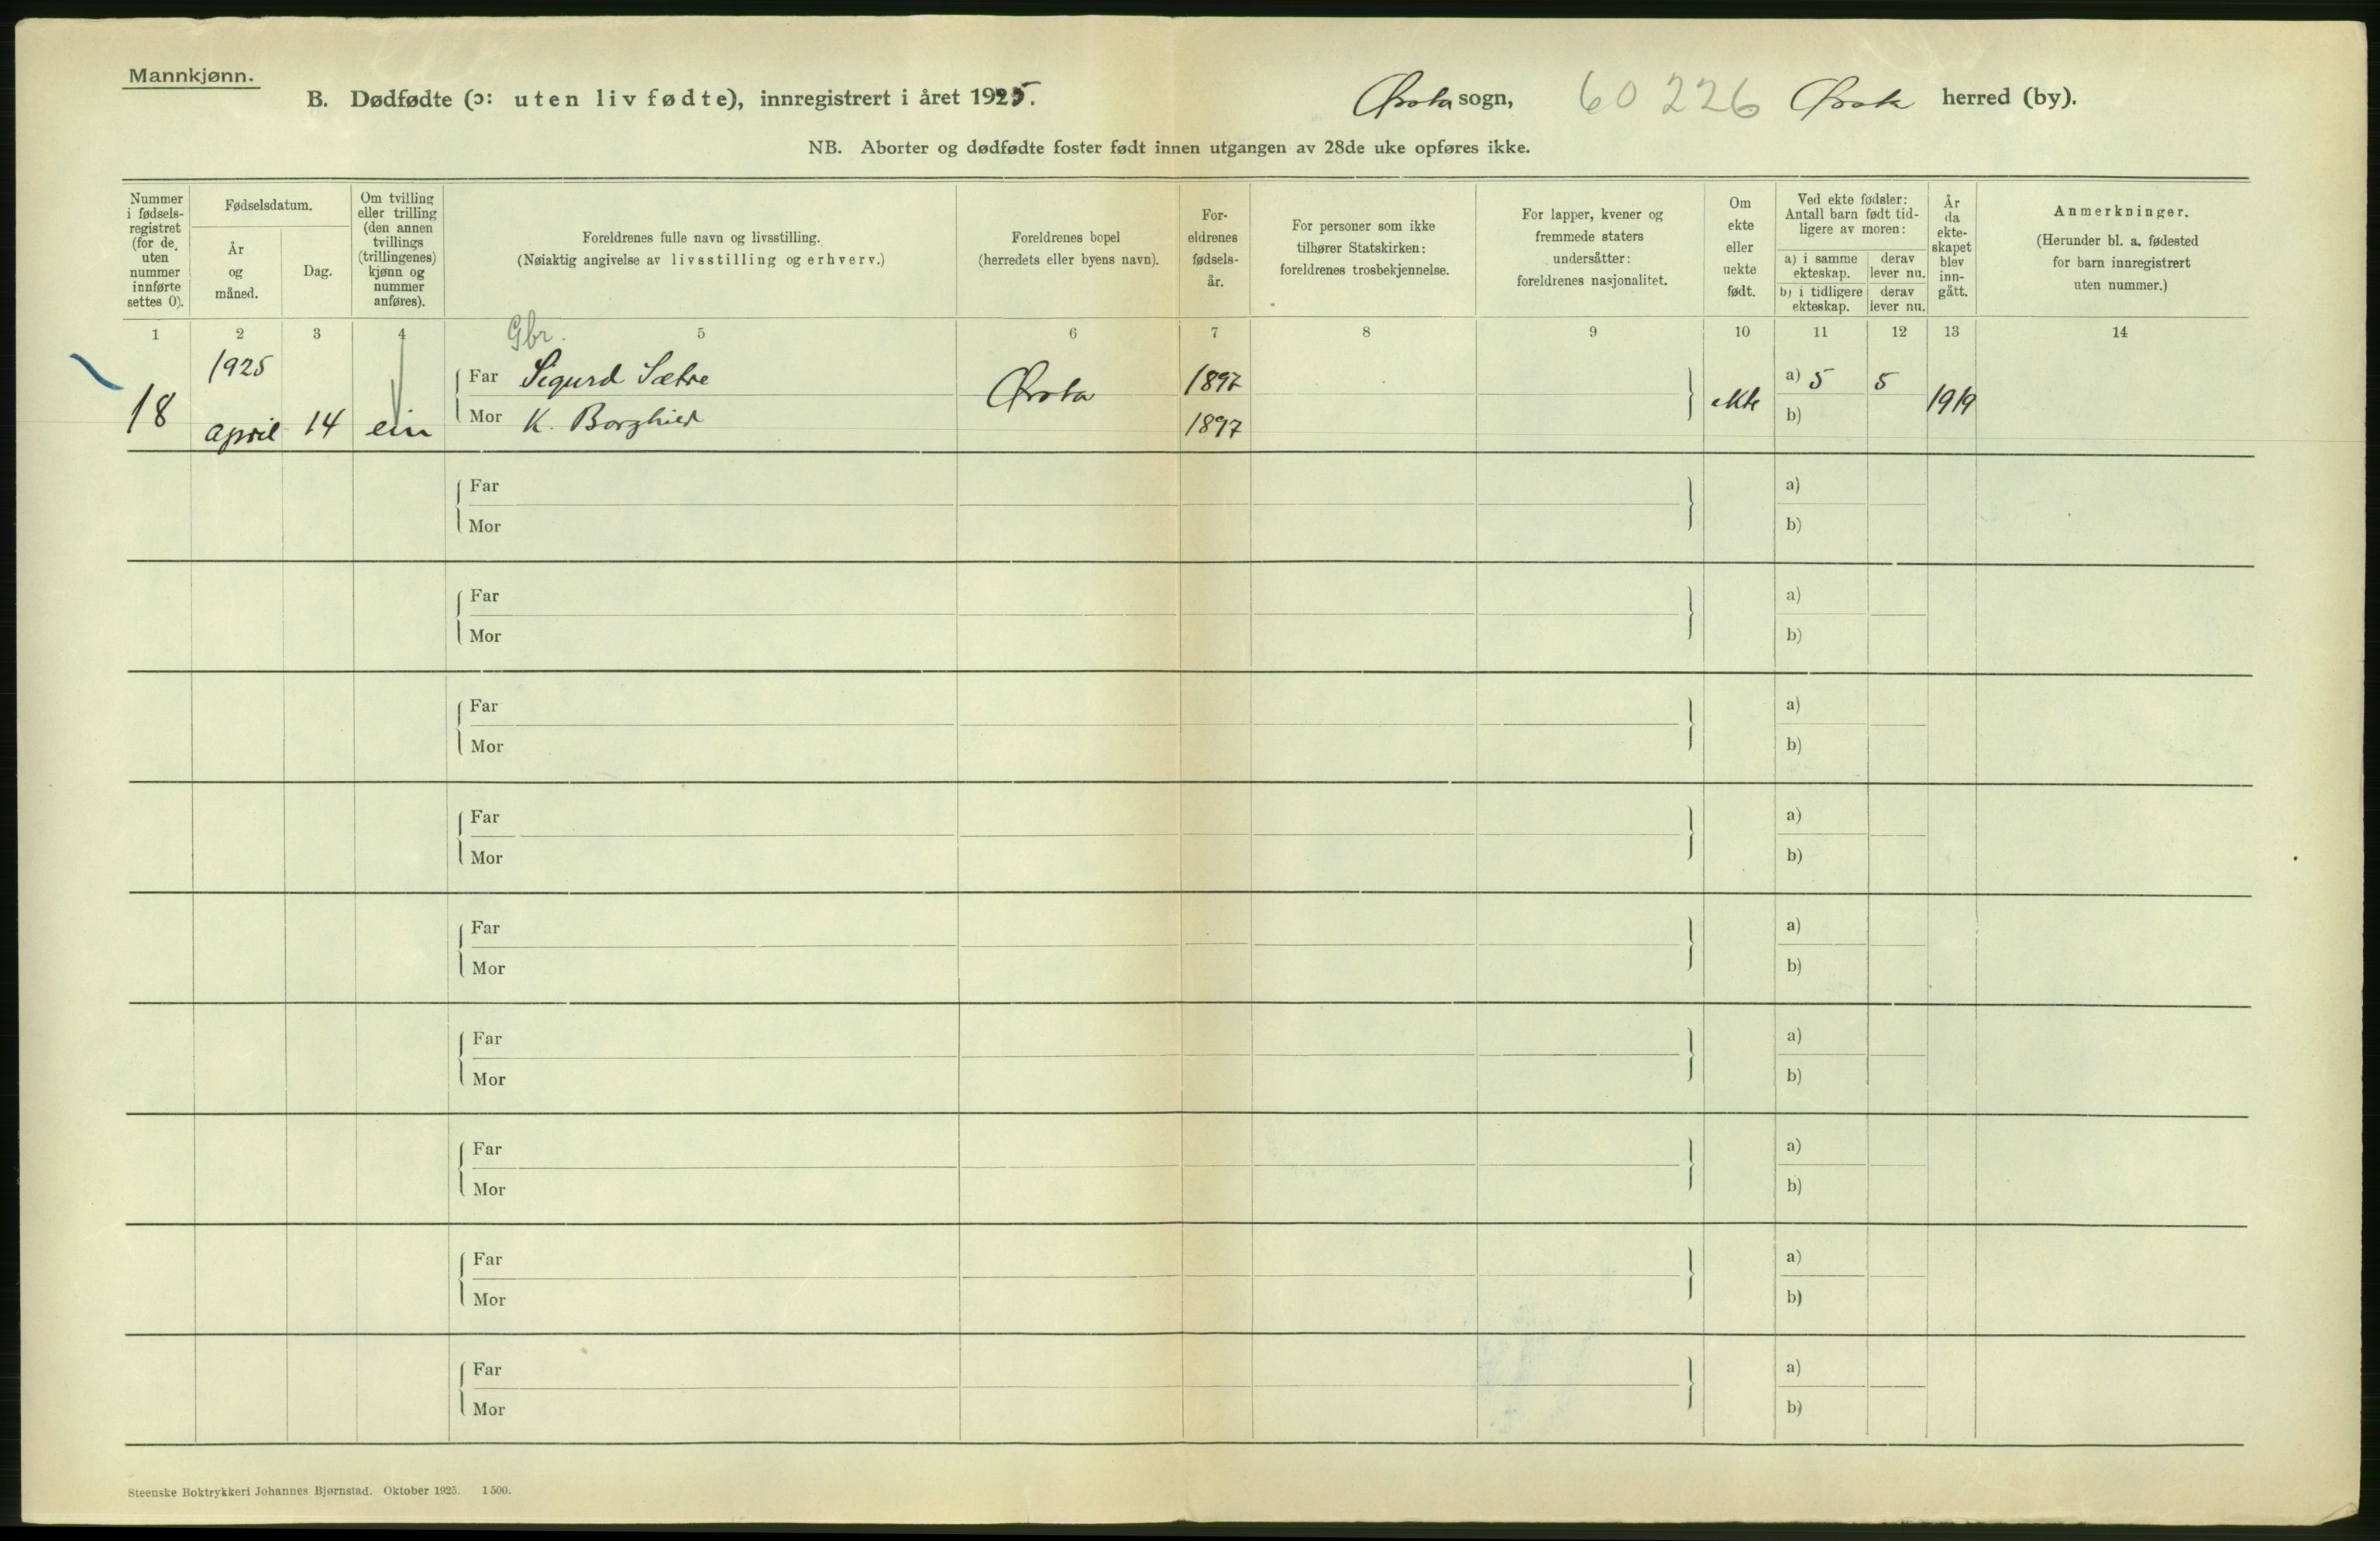 Mannkjønn.
B. Dødfødte (ɔ: uten liv fødte), innregistrert i året 1925.
Ørsta sogn, 60 226 Ørsta herred (by).
NB. Aborter og dødfødte foster født innen utgangen av 28de uke opføres ikke.
Nummer i fødsels- registret (for de uten nummer innførte settes 0).
Fødselsdatum.
År og måned.
Dag.
Om tvilling eller trilling (den annen tvillings (trillingenes) kjønn og nummer anføres).
Foreldrenes fulle navn og livsstilling.
(Nøiaktig angivelse av livsstilling og erhverv.)
Foreldrenes bopel
(herredets eller byens navn).
For- eldrenes fødsels- år.
For personer som ikke tilhører Statskirken: foreldrenes trosbekjennelse.
For lapper, kvener og fremmede staters undersåtter: foreldrenes nasjonalitet.
Om ekte eller uekte født.
Ved ekte fødsler: Antall barn født tid- ligere av moren:
a) i samme ekteskap.
derav lever nu.
b) i tidligere ekteskap.
derav lever nu.
År da ekte- skapet blev inn- gått.
Anmerkninger.
(Herunder bl. a. fødested for barn innregistrert uten nummer.)
1 2 3 4 5 6 7 8 9 10 11 12 13 14
Gbr.
1925
Far Sigurd Sætre Ørsta 1897 a) 5 5
18 april 14 ein ekte 1919
Mor K. Borghild 1897 b)
Far a)
Mor b)
Far a)
Mor b)
Far a)
Mor b)
Far a)
Mor b)
Far a)
Mor b)
Far a)
Mor b)
Far a)
Mor b)
Far a)
Mor b)
Far a)
Mor b)
Steenske Boktrykkeri Johannes Bjørnstad. Oktober 1925. 1500.